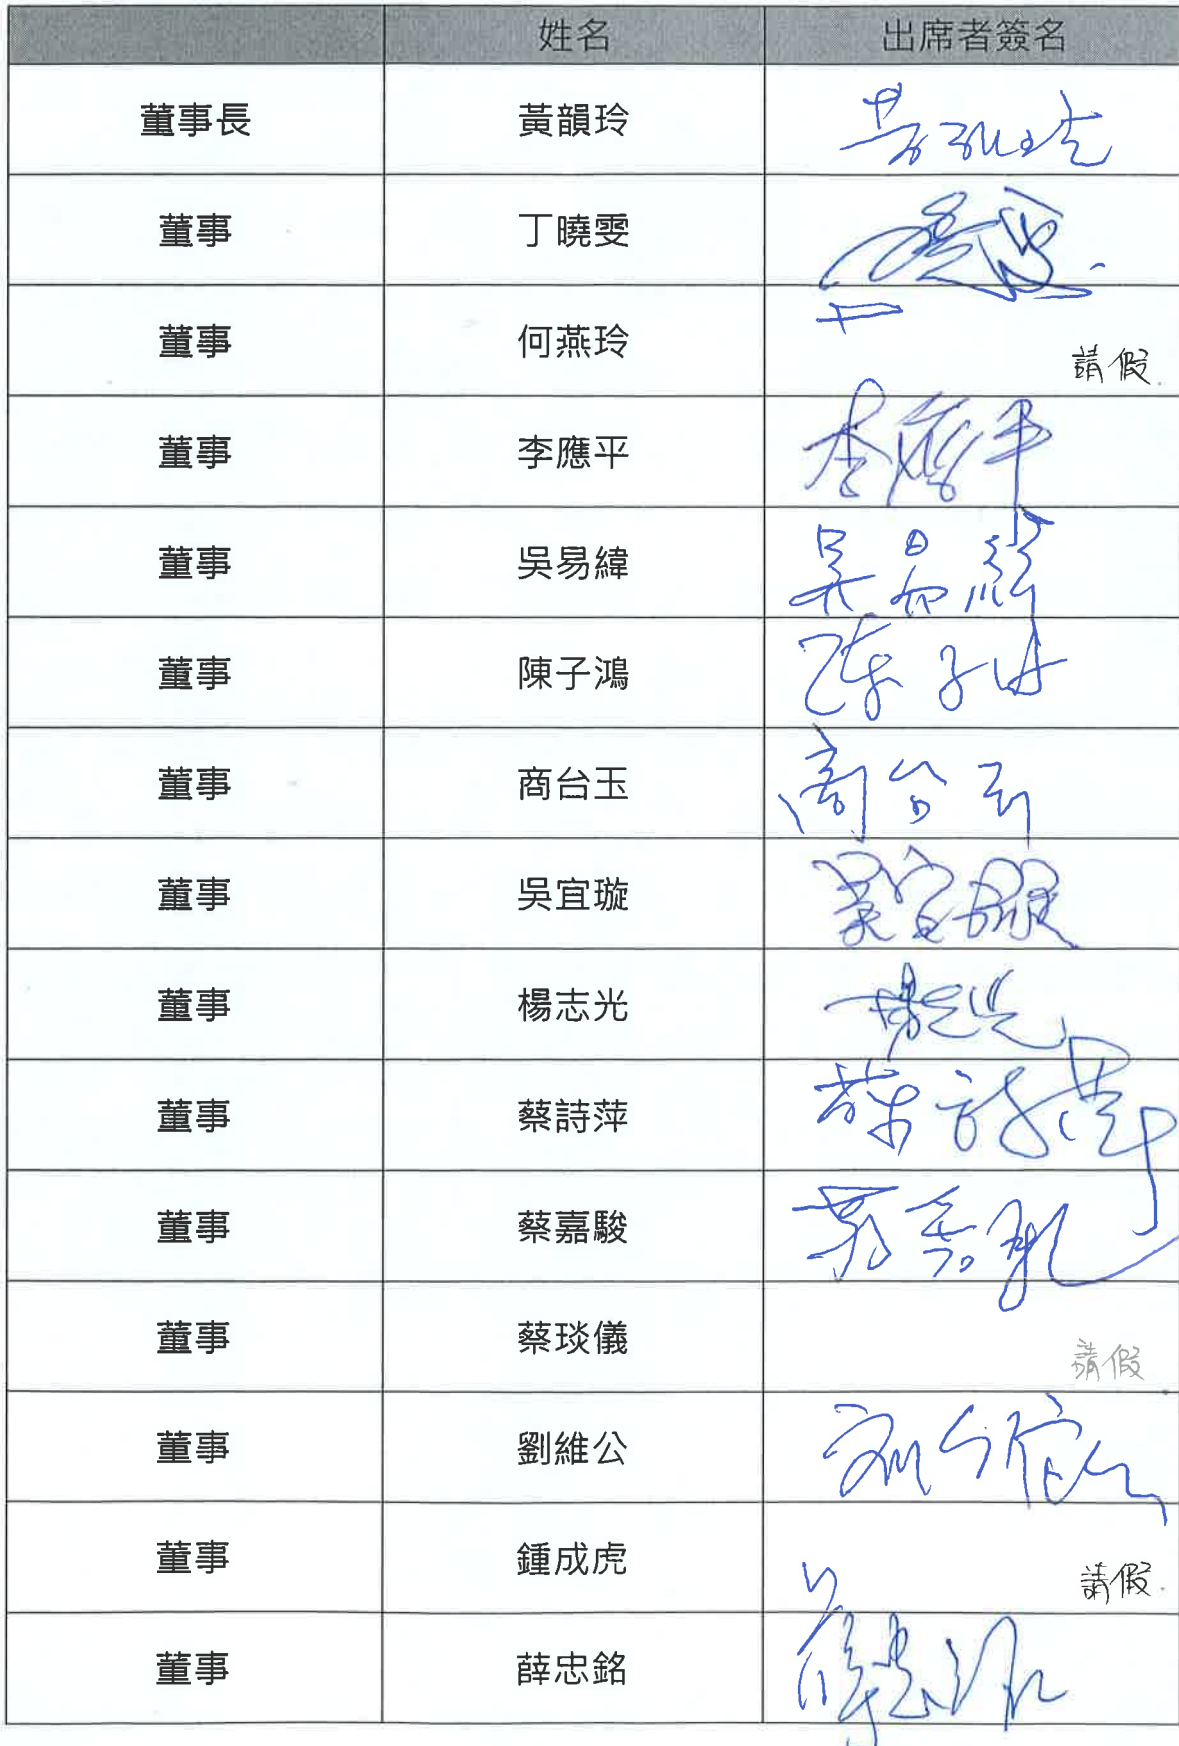 姓名 出席者簽名
董事長 黃韻玲
董事 丁曉雯
董事 何燕玲 請假
董事 李應平 李應平
董事 吳易緯 吳易緯
董事 陳子鴻 陳子鴻
董事 商台玉 商台玉
董事 吳宜璇 吳宜璇
董事 楊志光 楊志光
董事 蔡詩萍 蔡詩萍
董事 蔡嘉駿 蔡嘉駿
董事 蔡琰儀 請假
董事 劉維公
董事 鍾成虎 請假
董事 薛忠銘